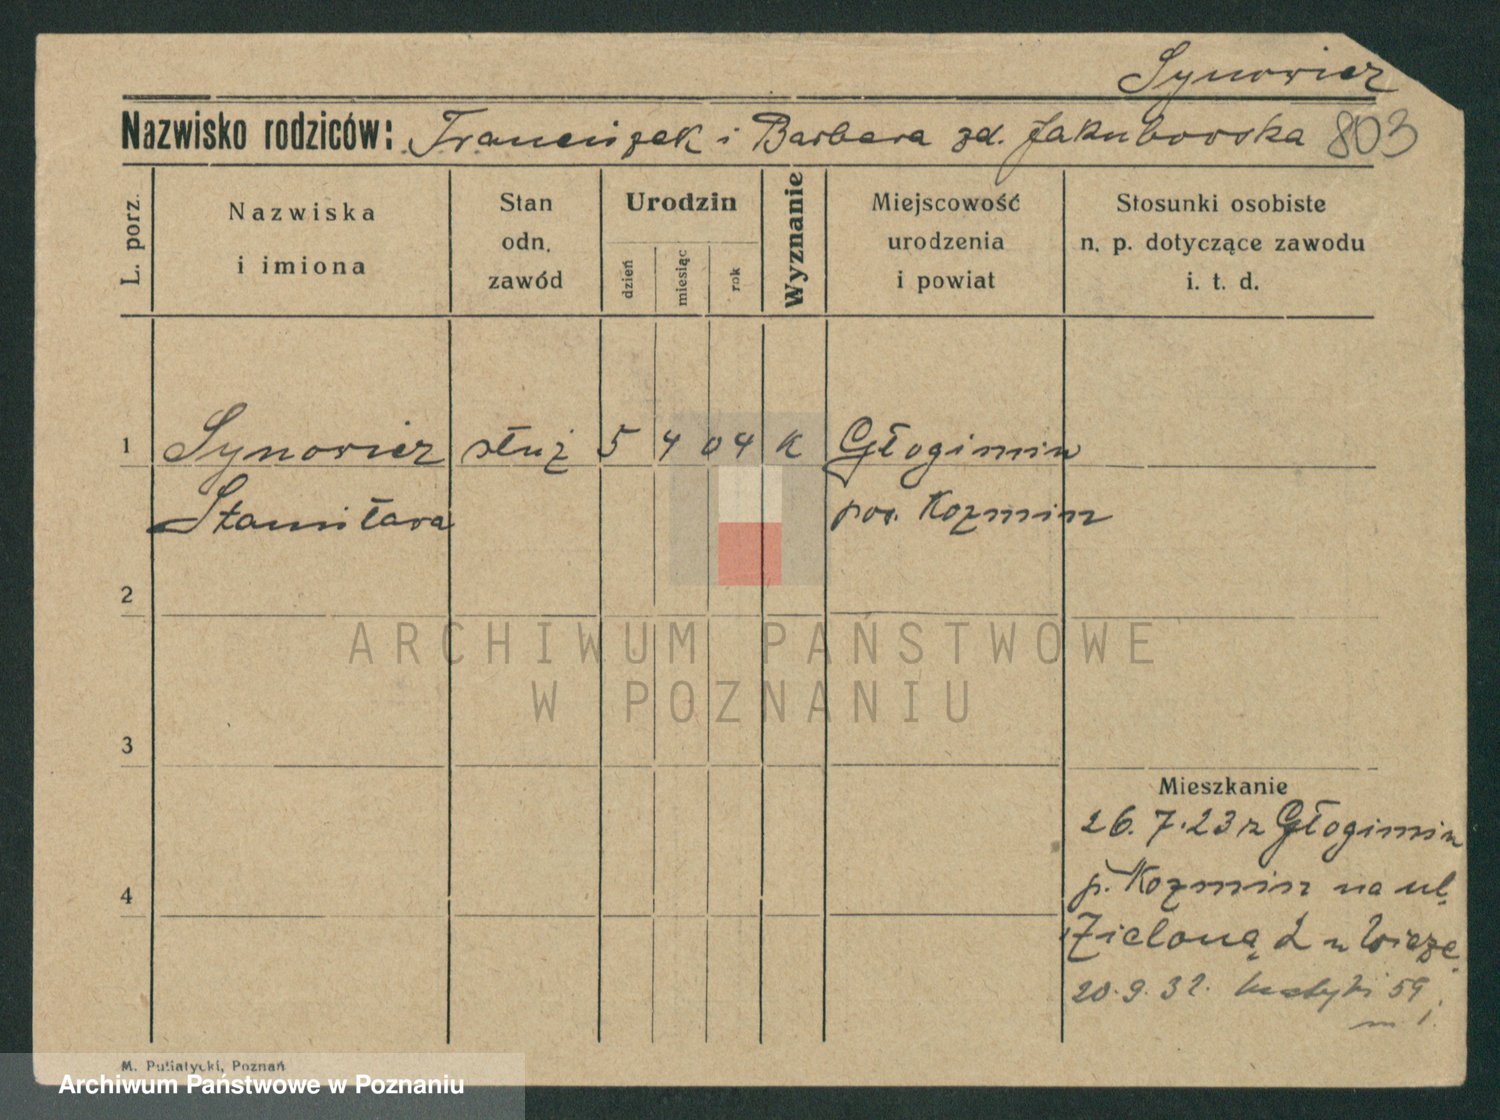 Synowiez
Nazwisko rodziców: Franciszek i Barbara zd. Jakubowska 803
L. porz.
Nazwiska
i imiona
Stan
odn.
zawód
Urodzin
dzień
miesiąc
rok
Wyznanie
Miejscowość
urodzenia
i powiat
Stosunki osobiste
n. p. dotyczące zawodu
i. t. d.
1 Synowiez służ 5 4 04 K Głogimin
Stanisława pow. Kozmin
2
ARCHIWUM PAŃSTWOWE
W POZNANIU
3
Mieszkanie
26. 7. 23 z Głogimin
p. Kozmin na ul.
4
Zieloną 2 u
20. 9. 32. 59
m 1.
M. Putiatycki, Poznań
Archiwum Państwowe w Poznaniu